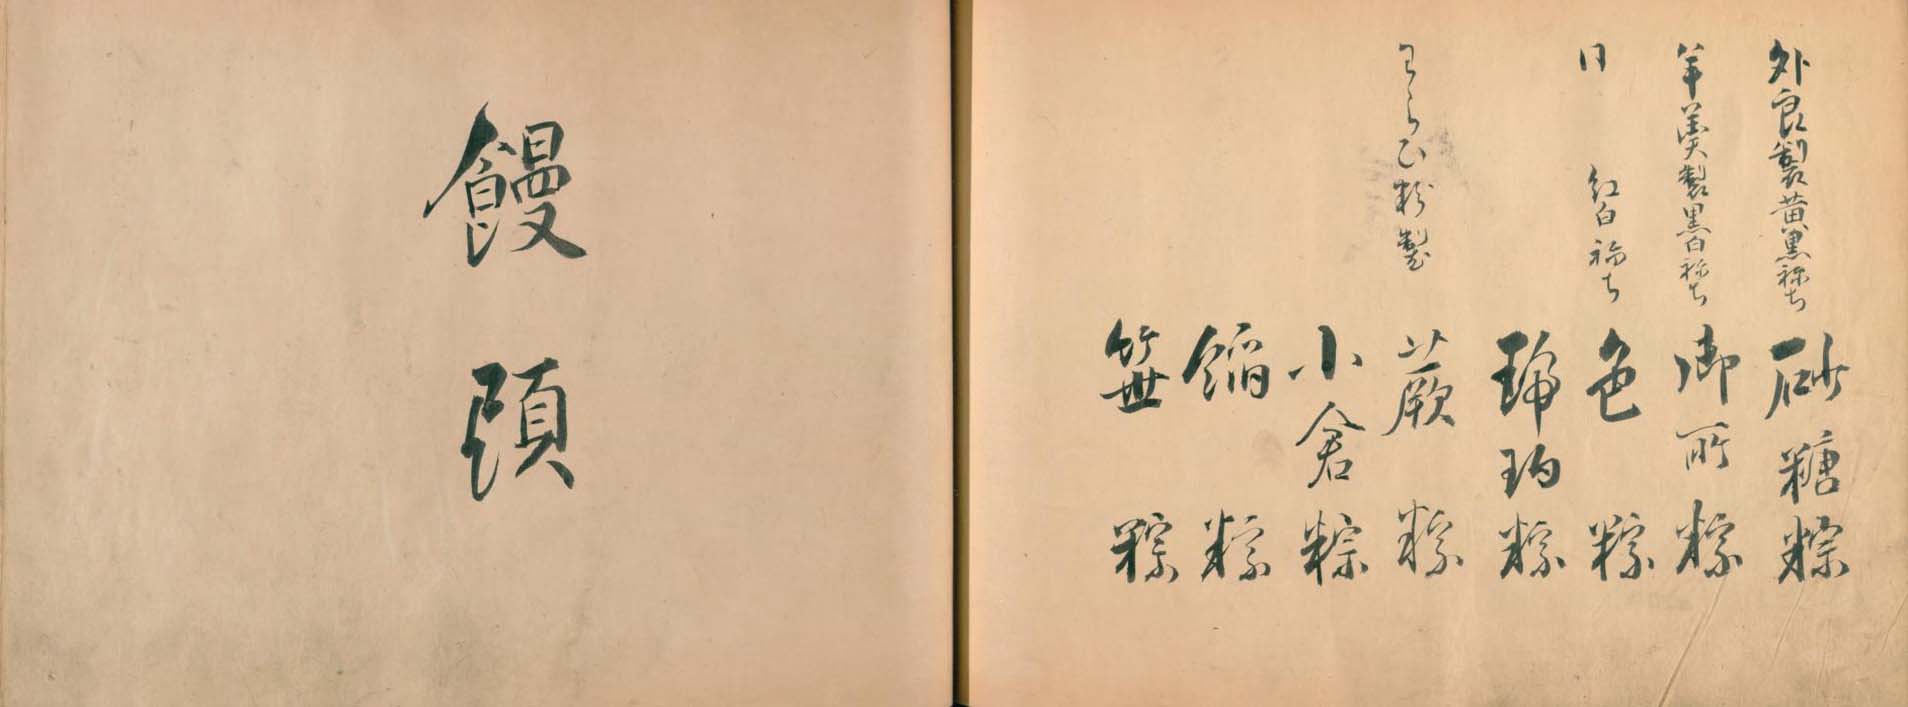 外良製黄黒祢ち 砂糖粽
羊羹製黒白祢ち 御所粽
同 紅白祢ち 色粽
琥珀粽
わらひ粉製 蕨粽
小倉粽
餡粽
笹粽
饅頭